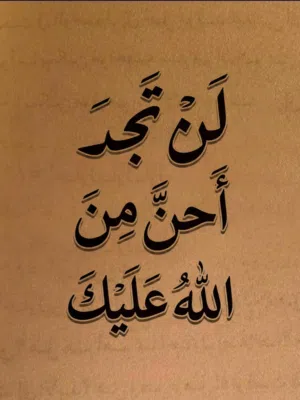 لَنْ تَجِدَ
أَحنَّ مِنَ
اللهُ عَلَيْكَ